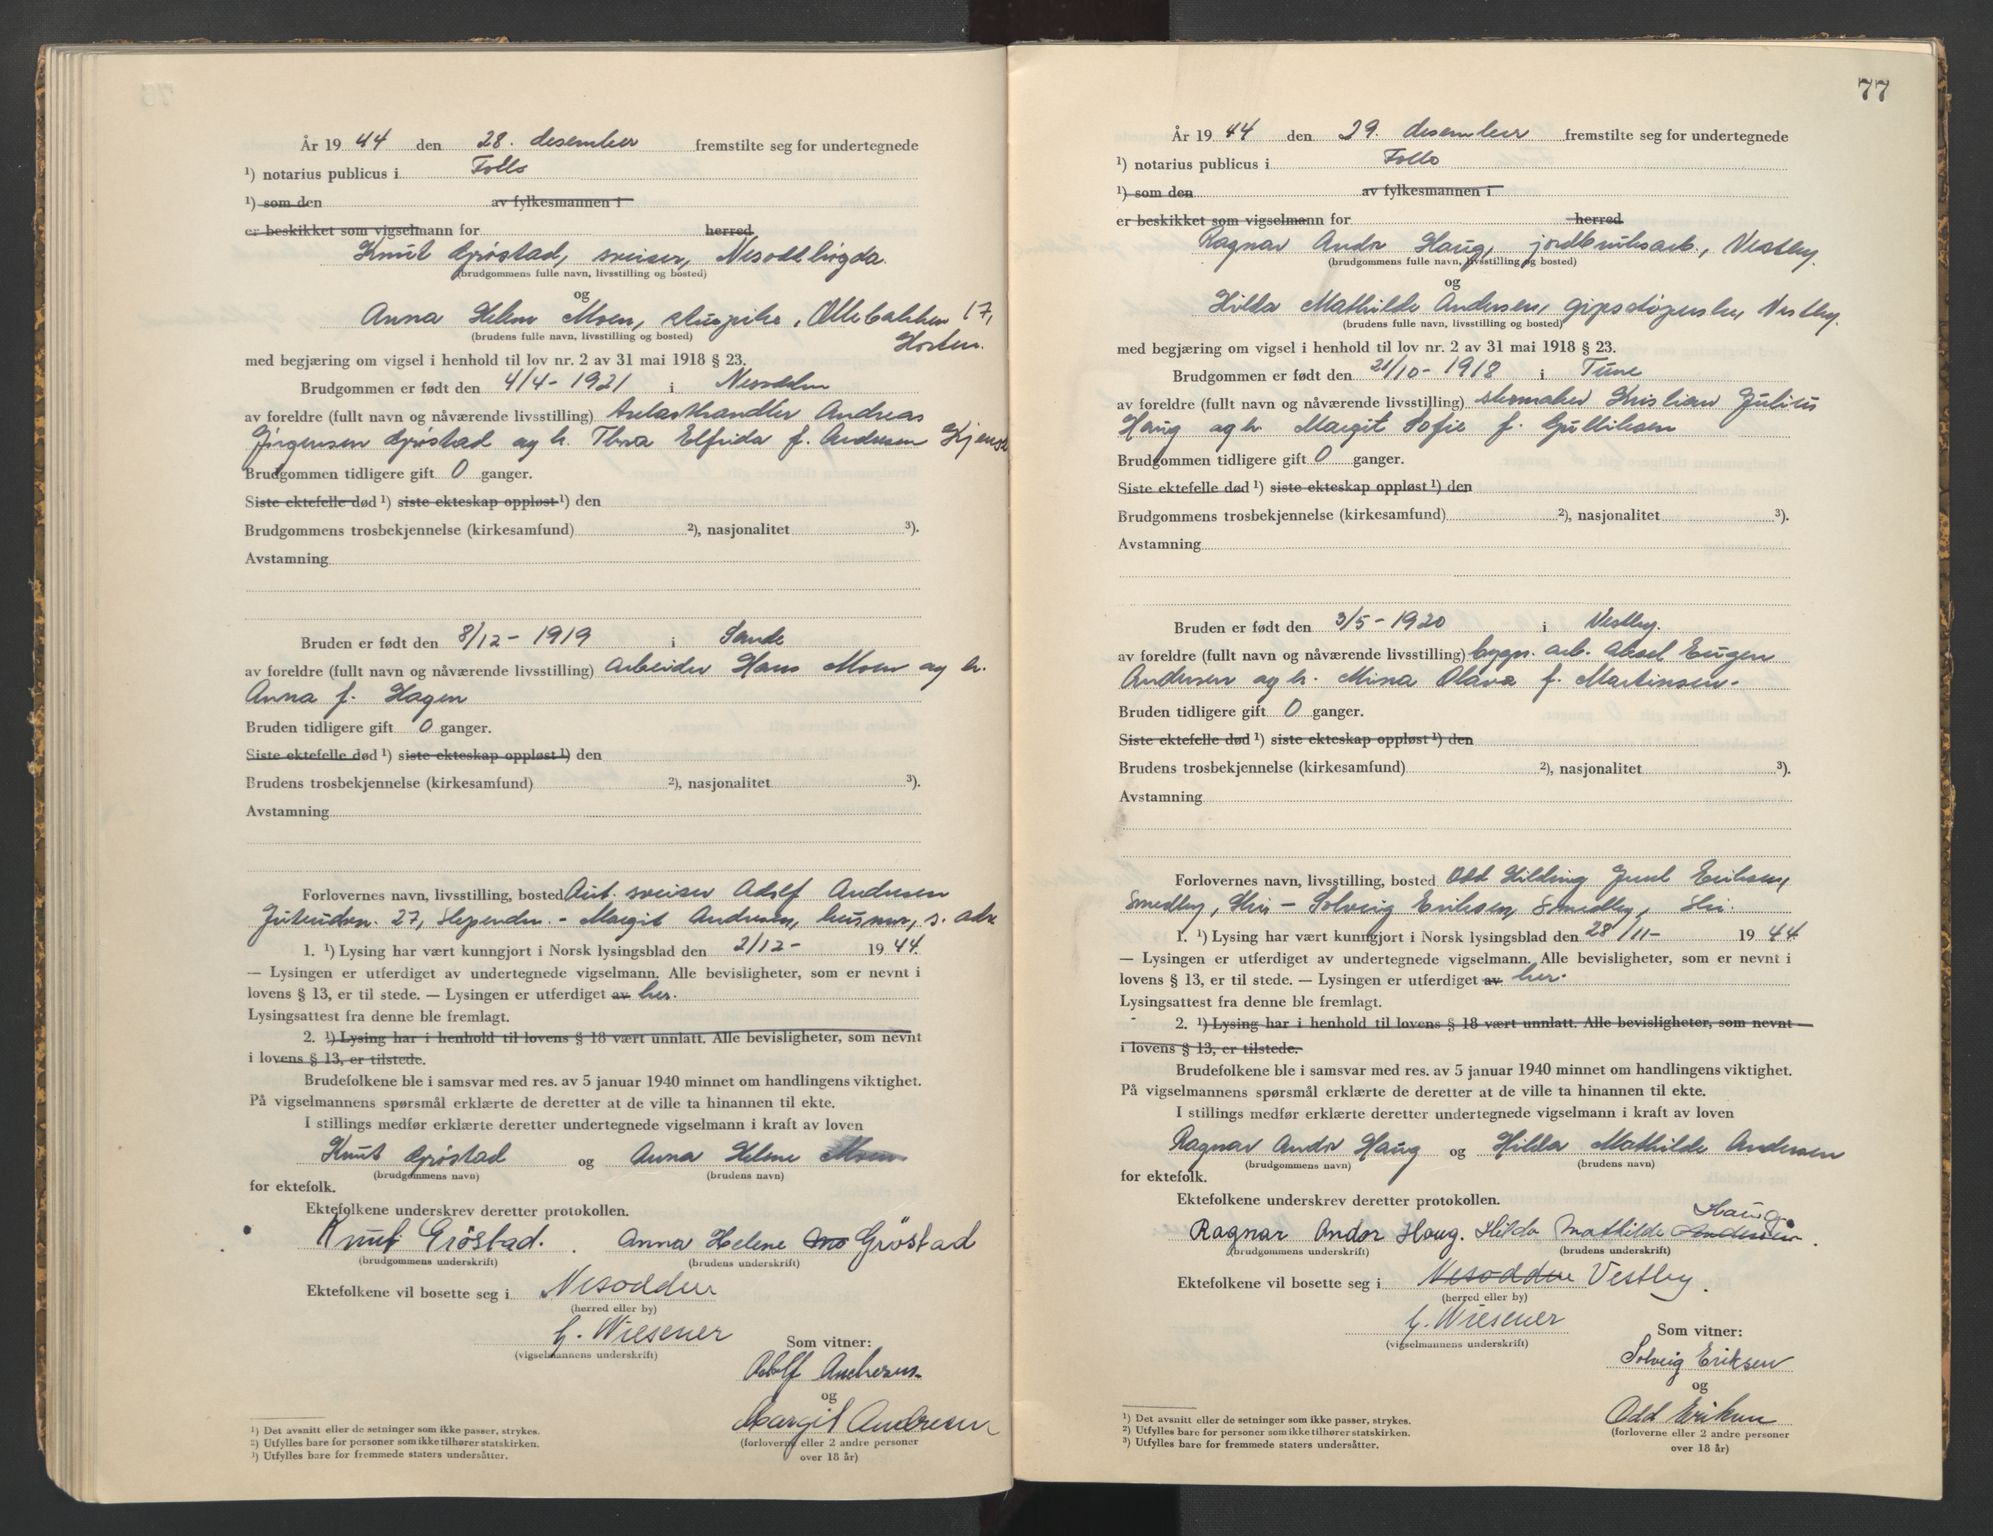 År 19 44 den 28. desember fremstilte seg for undertegnede
¹) notarius publicus i Follo
¹) som den av fylkesmannen i
er beskikket som vigselmann for herred
Knut Grøstad, sveiser, Nesoddbygda
(brudgommens fulle navn, livsstilling og bosted)
og
Anna Helene Moen, stuepike, Ollebakken 17,
(brudens fulle navn, livsstilling og bosted) Horten.
med begjæring om vigsel i henhold til lov nr. 2 av 31 mai 1918 § 23.
Brudgommen er født den 4/4 - 1921 i Nesodden
av foreldre (fullt navn og nåværende livsstilling) Andreas
Jørgensen Grøstad og h. Thora Elfrida f. Andresen
Brudgommen tidligere gift 0 ganger.
Siste ektefelle død ¹) siste ekteskap oppløst ¹) den
Brudgommens trosbekjennelse (kirkesamfund) ²), nasjonalitet ³).
Avstamning
Bruden er født den 8/12 - 1919 i Sande
av foreldre (fullt navn og nåværende livsstilling) arbeider Hans Moen og h.
Anna f. Hagen
Bruden tidligere gift 0 ganger.
Siste ektefelle død ¹) siste ekteskap oppløst ¹) den
Brudens trosbekjennelse (kirkesamfund) ²), nasjonalitet ³).
Avstamning
Forlovernes navn, livsstilling, bosted Aut. sveiser Adolf Andresen
27, Slependen. - Margit Andresen, husmor, s. adr
1. ¹) Lysing har vært kunngjort i Norsk lysingsblad den 2/12 - 19 44.
— Lysingen er utferdiget av undertegnede vigselmann. Alle bevisligheter, som er nevnt i
lovens § 13, er til stede. — Lysingen er utferdiget av her.
Lysingsattest fra denne ble fremlagt.
2. ¹) Lysing har i henhold til lovens § 18 vært unnlatt. Alle bevisligheter, som nevnt
i lovens § 13, er tilstede.
Brudefolkene ble i samsvar med res. av 5 januar 1940 minnet om handlingens viktighet.
På vigselmannens spørsmål erklærte de deretter at de ville ta hinannen til ekte.
I stillings medfør erklærte deretter undertegnede vigselmann i kraft av loven
Knut Grøstad og Anna Helene Moen
(brudgommens navn) (brudens navn)
for ektefolk.
Ektefolkene underskrev deretter protokollen.
Knut Grøstad. Anna Helene Mo Grøstad
(brudgommens underskrift) (brudens underskrift)
Ektefolkene vil bosette seg i Nesodden
(herred eller by)
G. Wiesener
(vigselmannens underskrift)
Som vitner:
Adolf Andresen
og
Margit Andresen
(forloverne eller 2 andre personer
over 18 år)
¹) Det avsnitt eller de setninger som ikke passer, strykes.
²) Utfylles bare for personer som ikke tilhører statskirken.
³) Utfylles bare for fremmede staters undersåtter.
77
År 19 44 den 29. desember fremstilte seg for undertegnede
¹) notarius publicus i Follo
¹) som den av fylkesmannen i
er beskikket som vigselmann for herred
Ragnar Andor Haug, jordbruksarb., Vestby.
(brudgommens fulle navn, livsstilling og bosted)
og
Hilda Mathilde Andersen, Vestby.
(brudens fulle navn, livsstilling og bosted)
med begjæring om vigsel i henhold til lov nr. 2 av 31 mai 1918 § 23.
Brudgommen er født den 21/10 - 1918 i Tune
av foreldre (fullt navn og nåværende livsstilling) skomaker Kristian Julius
Haug og h. Margit Sofie f. Gulliksen
Brudgommen tidligere gift 0 ganger.
Siste ektefelle død ¹) siste ekteskap oppløst ¹) den
Brudgommens trosbekjennelse (kirkesamfund) ²), nasjonalitet ³).
Avstamning
Bruden er født den 3/5 - 1920 i Vestby.
av foreldre (fullt navn og nåværende livsstilling) bygn. arb. Aksel Eugen
Andersen og h. Mina Olava f. Martinsen.
Bruden tidligere gift 0 ganger.
Siste ektefelle død ¹) siste ekteskap oppløst ¹) den
Brudens trosbekjennelse (kirkesamfund) ²), nasjonalitet ³).
Avstamning
Forlovernes navn, livsstilling, bosted Odd Hilding Juul Eriksen,
Smedby, Ski - Solveig Eriksen Smedby, Ski.
1. ¹) Lysing har vært kunngjort i Norsk lysingsblad den 28/11 - 19 44
— Lysingen er utferdiget av undertegnede vigselmann. Alle bevisligheter, som er nevnt i
lovens § 13, er til stede. — Lysingen er utferdiget av her.
Lysingsattest fra denne ble fremlagt.
2. ¹) Lysing har i henhold til lovens § 18 vært unnlatt. Alle bevisligheter, som nevnt
i lovens § 13, er tilstede.
Brudefolkene ble i samsvar med res. av 5 januar 1940 minnet om handlingens viktighet.
På vigselmannens spørsmål erklærte de deretter at de ville ta hinannen til ekte.
I stillings medfør erklærte deretter undertegnede vigselmann i kraft av loven
Ragnar Andor Haug og Hilda Mathilde Andersen
(brudgommens navn) (brudens navn)
for ektefolk.
Ektefolkene underskrev deretter protokollen. Haug
Ragnar Andor Haug. Hilda Mathilde Andersen.
(brudgommens underskrift) (brudens underskrift)
Ektefolkene vil bosette seg i Nesodden Vestby.
(herred eller by)
G. Wiesener
(vigselmannens underskrift)
Som vitner:
Solveig Eriksen
og
Odd Eriksen
(forloverne eller 2 andre personer
over 18 år)
¹) Det avsnitt eller de setninger som ikke passer, strykes.
²) Utfylles bare for personer som ikke tilhører statskirken.
³) Utfylles bare for fremmede staters undersåtter.